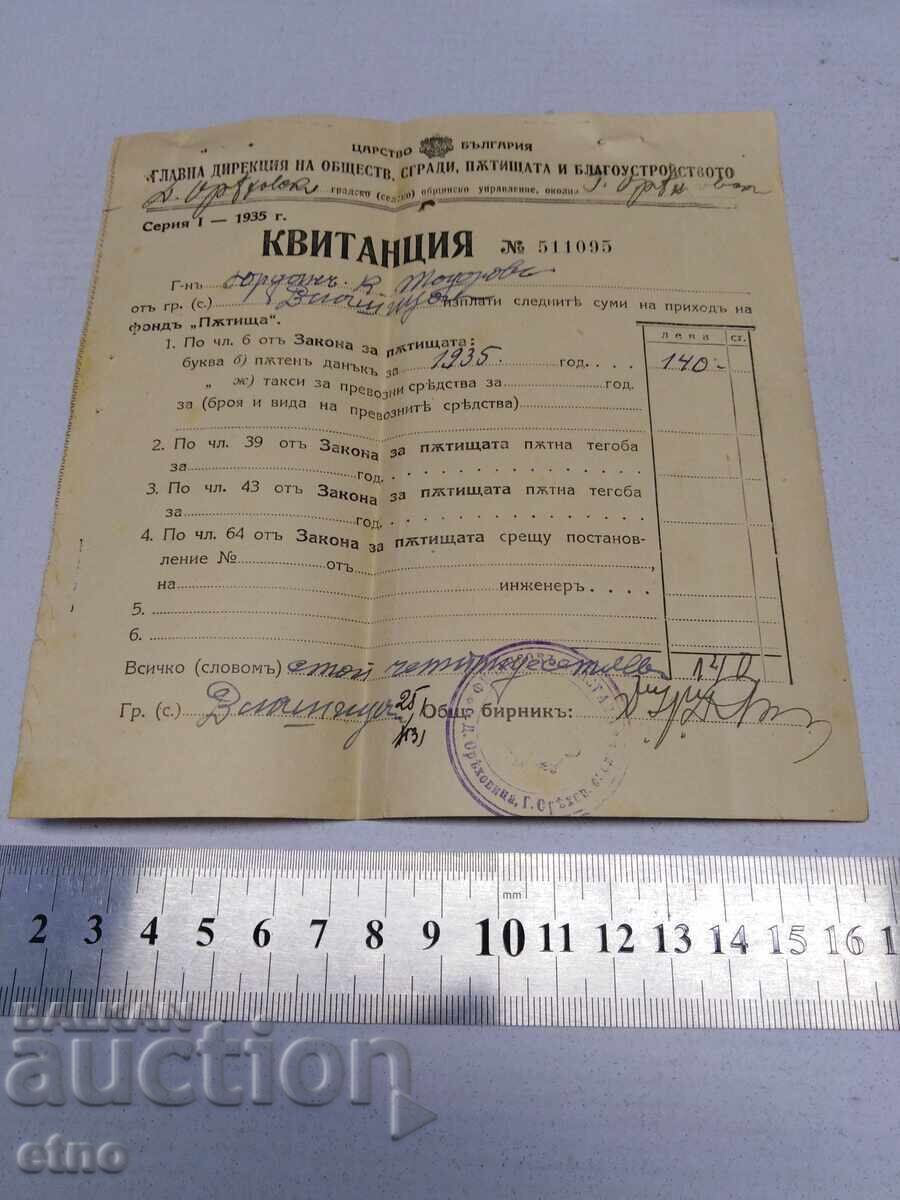 ЦАРСТВО БЪЛГАРИЯ
ГЛАВНА ДИРЕКЦИЯ НА ОБЩЕСТВ. СГРАДИ, ПѪТИЩАТА И БЛАГОУСТРОЙСТВОТО
Д. Орѣховска градско (селско) общинско управление, околия Г. Орѣховска
Серия I — 1935 г.
КВИТАНЦИЯ № 511095
Г-нъ Юрданъ К Тодоровъ
отъ гр. (с.) изплати следнитѣ суми на приходъ на
фондъ „Пѫтища".
лева ст.
1. По чл. 6 отъ Закона за пѫтищата:
буква б) пѫтенъ данъкъ за 1935 год. 140-
„ ж) такси за превозни срѣдства за год.
за (броя и вида на превознитѣ срѣдства)
2. По чл. 39 отъ Закона за пѫтищата пѫтна тегоба
за год.
3. По чл. 43 отъ Закона за пѫтищата пѫтна тегоба
за год.
4. По чл. 64 отъ Закона за пѫтищата срещу постанов-
ление № отъ
на инженеръ
5.
6.
Всичко (словомъ) стои четиридесетъ лева 140
Гр. (с.) 25 Общ. бирникъ:
Д. Орѣховица, Г. Орѣхов.
mm
2 3 4 5 6 7 8 9 10 11 12 13 14 15 16 1
BALKAN
auction
etno